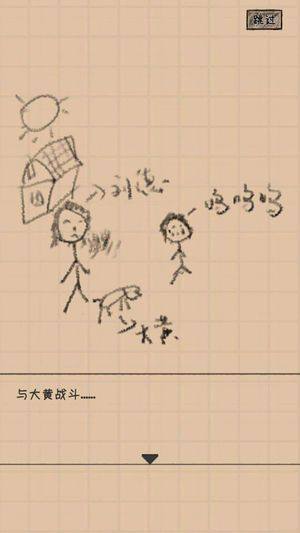 跳过
刘德
呜呜呜
大黄
与大黄战斗……